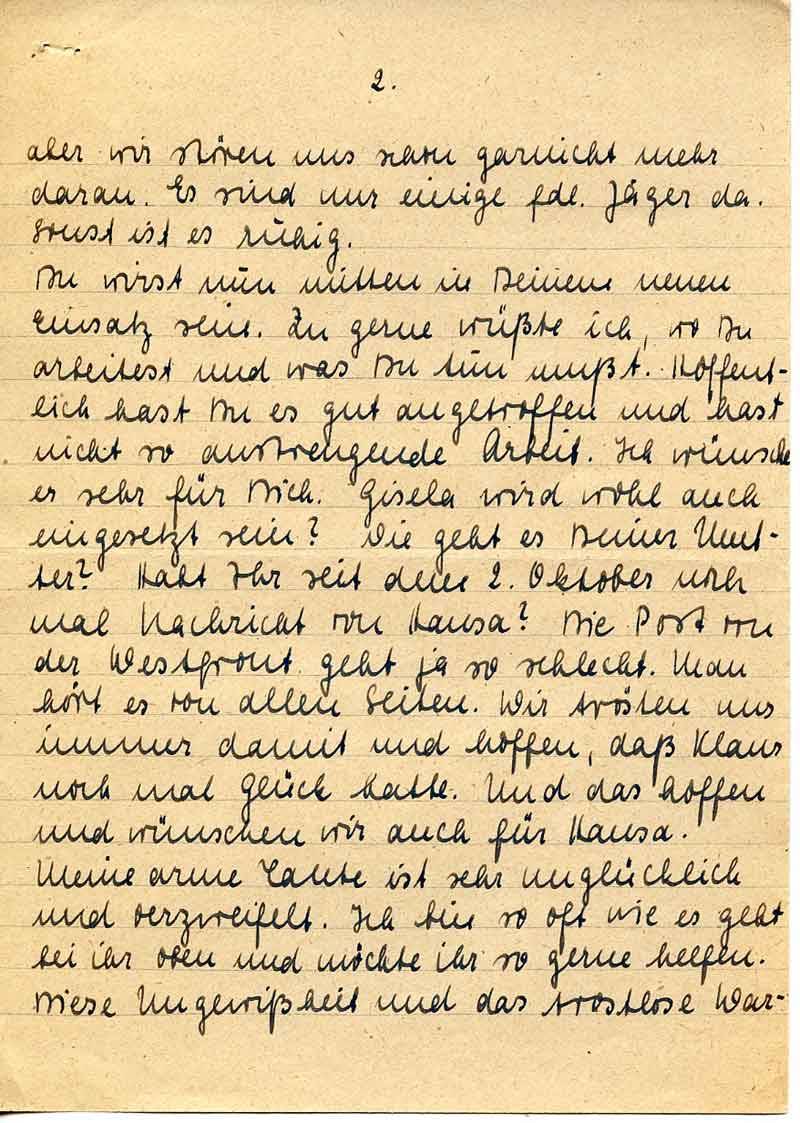 2.
aber wir stören uns schon garnicht mehr
daran. Es sind nur einige fdl. Jäger da.
Sonst ist es ruhig.
Du wirst nun mitten in Deinem neuen
Einsatz sein. Zu gerne wüßte ich, wo Du
arbeitest und was Du tun mußt. Hoffent-
lich hast Du es gut angetroffen und hast
nicht so anstrengende Arbeit. Ich wünsche
es sehr für Dich. Gisela wird wohl auch
eingesetzt sein? Wie geht es Deiner Mut-
ter? Habt Ihr seit dem 2. Oktober noch
mal Nachricht von Hansa? Die Post von
der Westfront geht ja so schlecht. Man
hört es von allen Seiten. Wir trösten uns
immer damit und hoffen, daß Klaus
noch mal Glück hatte. Und das hoffen
und wünschen wir auch für Hansa.
Meine arme Tante ist sehr unglücklich
und verzweifelt. Ich bin so oft wie es geht
bei ihr oben und möchte ihr so gerne helfen.
Diese Ungewißheit und das trostlose War-